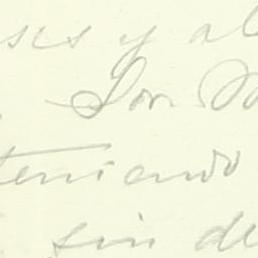 ses y al
Son
teniendo
sin de